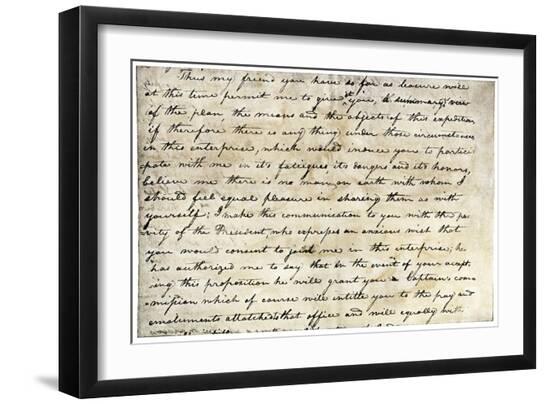 Thus my friend you have so far as leasure will
at this time permit me to give it you, a summary view
of the plan, the means and the objects of this expedition
if therefore there is any thing under those circumstances
in this enterprise, which would induce you to partici
pate with me in it's fatiegues, it's dangers and it's honors,
believe me there is no man on earth with whom I
should feel equal pleasure in sharing them as with
yourself; I make this communication to you with the pr
vity of the President, who expresses an anxious wish that
you would consent to join me in this enterprise; he
has authorized me to say that in the event of your accep
ing this proposition he will grant you a Captain's com
mission which of course will intitle you to the pay and
emoluments attatched to that office and will equally with